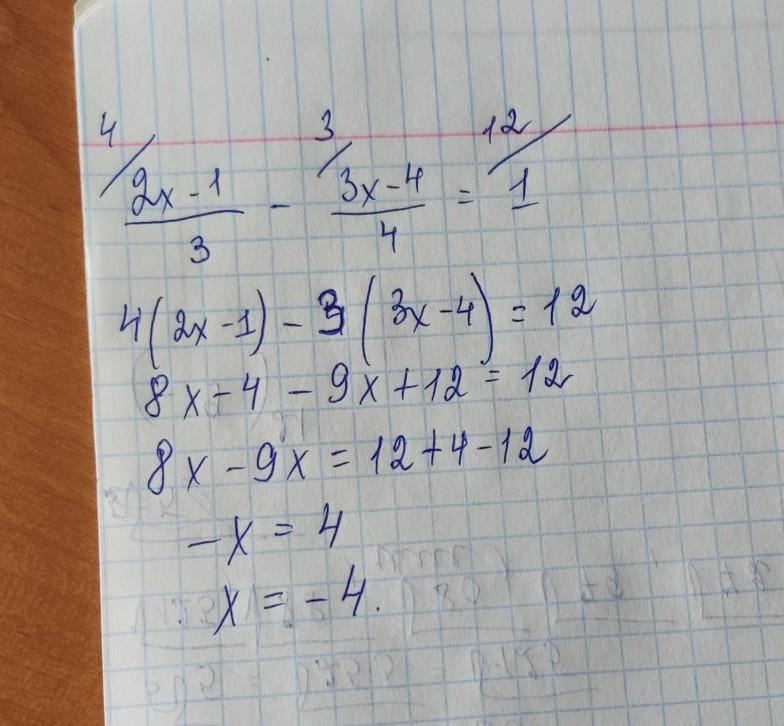 4/ 3/ 12/
2x-1/3 - 3x-4/4 = 1
4(2x-1) - 3(3x-4) = 12
8x-4 - 9x+12 = 12
8x - 9x = 12+4-12
-x = 4
x = -4.